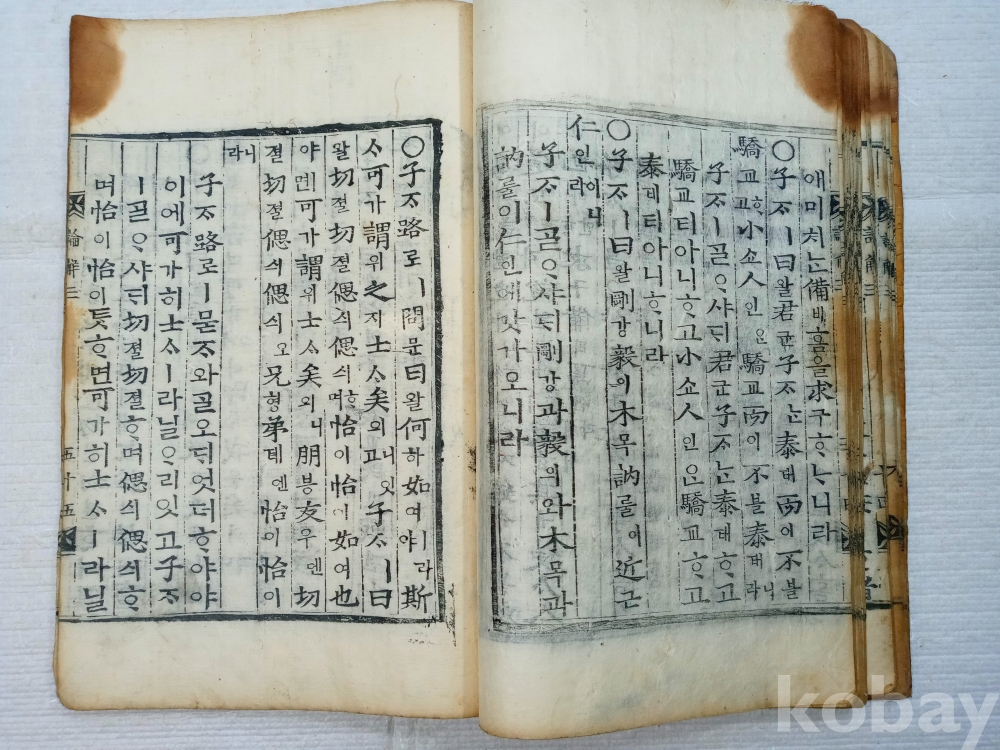 애미처ᄂᆞᆫ備비홈을求구ᄒᆞᄂᆞ니라
○子ᄌᆞㅣ曰왈君군子ᄌᆞᄂᆞᆫ泰태而이不블
驕교ᄒᆞ고小쇼人인ᄋᆞᆫ驕교而이不블泰태니라
子ᄌᆞㅣᄀᆞᆯᄋᆞ샤ᄃᆡ君군子ᄌᆞᄂᆞᆫ泰태ᄒᆞ고
驕교티아니ᄒᆞ고小쇼人인은驕교ᄒᆞ고
泰태티아니ᄒᆞ니라
○子ᄌᆞㅣ曰왈剛강毅의木목訥눌이近근
仁인이니라
子ᄌᆞㅣᄀᆞᆯᄋᆞ샤ᄃᆡ剛강과毅의와木목과
訥눌이仁인에갓가오니라
○子ᄌᆞ路로ㅣ問문曰왈何하如여ㅣ라야斯
ᄉᆞ可가謂위之지士ᄉᆞ矣의니잇고子ᄌᆞㅣ曰
왈切졀切졀偲싀偲싀ᄒᆞ며怡이怡이如여也
야ㅣ면可가謂위士ᄉᆞ矣의니朋붕友우엔切
졀切졀偲싀偲싀오兄형弟뎨엔怡이怡이
니라
子ᄌᆞ路로ㅣ묻ᄌᆞ와ᄀᆞᆯ오ᄃᆡ엇더ᄒᆞ야야
이에可가히士ᄉᆞㅣ라닐ᄋᆞ리잇고子ᄌᆞ
ㅣᄀᆞᆯᄋᆞ샤ᄃᆡ切졀切졀ᄒᆞ며偲싀偲싀ᄒᆞ
며怡이怡이ᄃᆞᆺᄒᆞ면可가히士ᄉᆞㅣ라닐
論解三 五十五
kobay